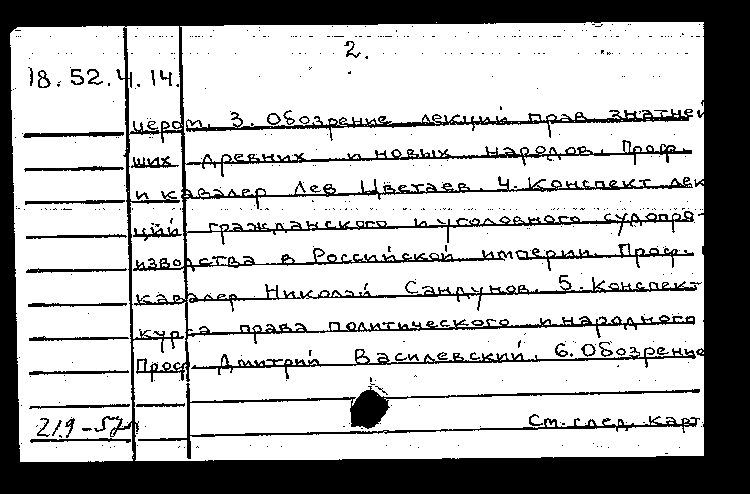 2.
18.52.4.14.
церот. 3. Обозрение лекций прав знатней
ших древних и новых народов. Проф.
и кавалер Лев Цветаев. 4. Конспект лек
ций гражданского и уголовного судопро-
изводства в Российской империи. Проф. и
кавалер Николай Сандунов. 5. Конспект
курса права политического и народного.
Проф. Дмитрий Василевский. 6. Обозрение
См. след. карт.